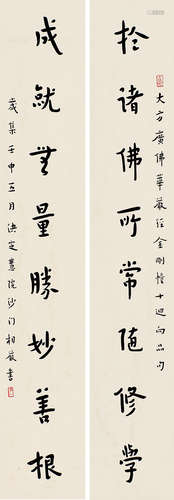 大方廣佛華嚴經金剛幢十迴向品句
於諸佛所常隨修學
成就無量勝妙善根
歲集壬申五月決定慧院沙门相嚴書